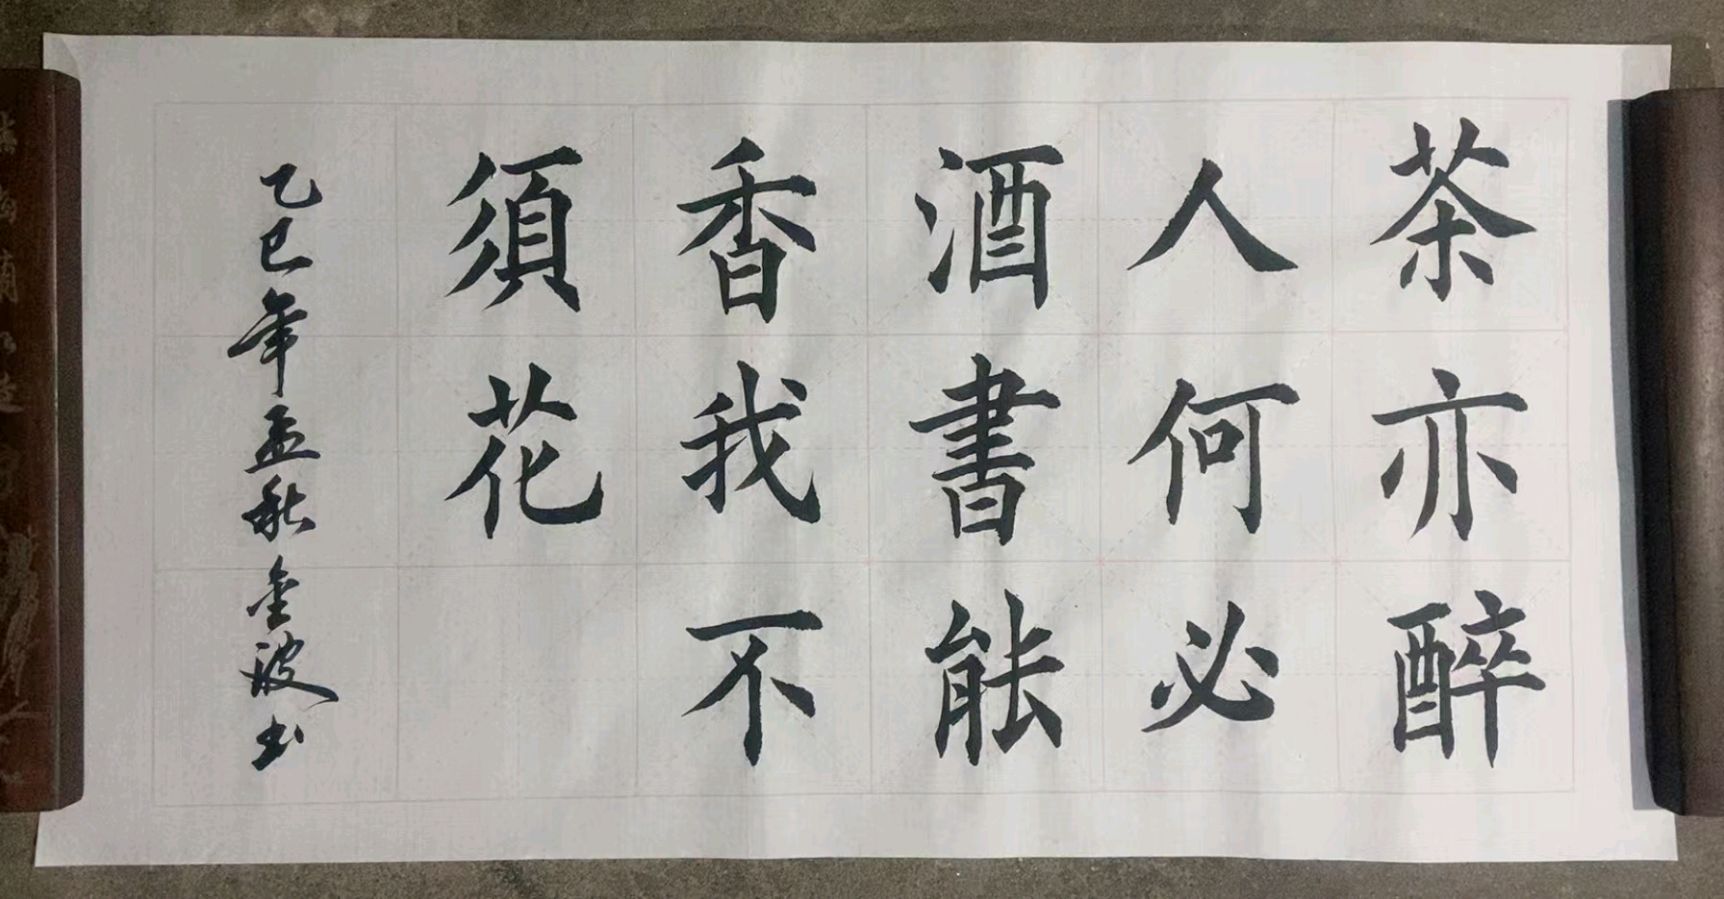 茶亦醉
人何必
酒書能
香我不
須花
乙巳年孟秋金波书